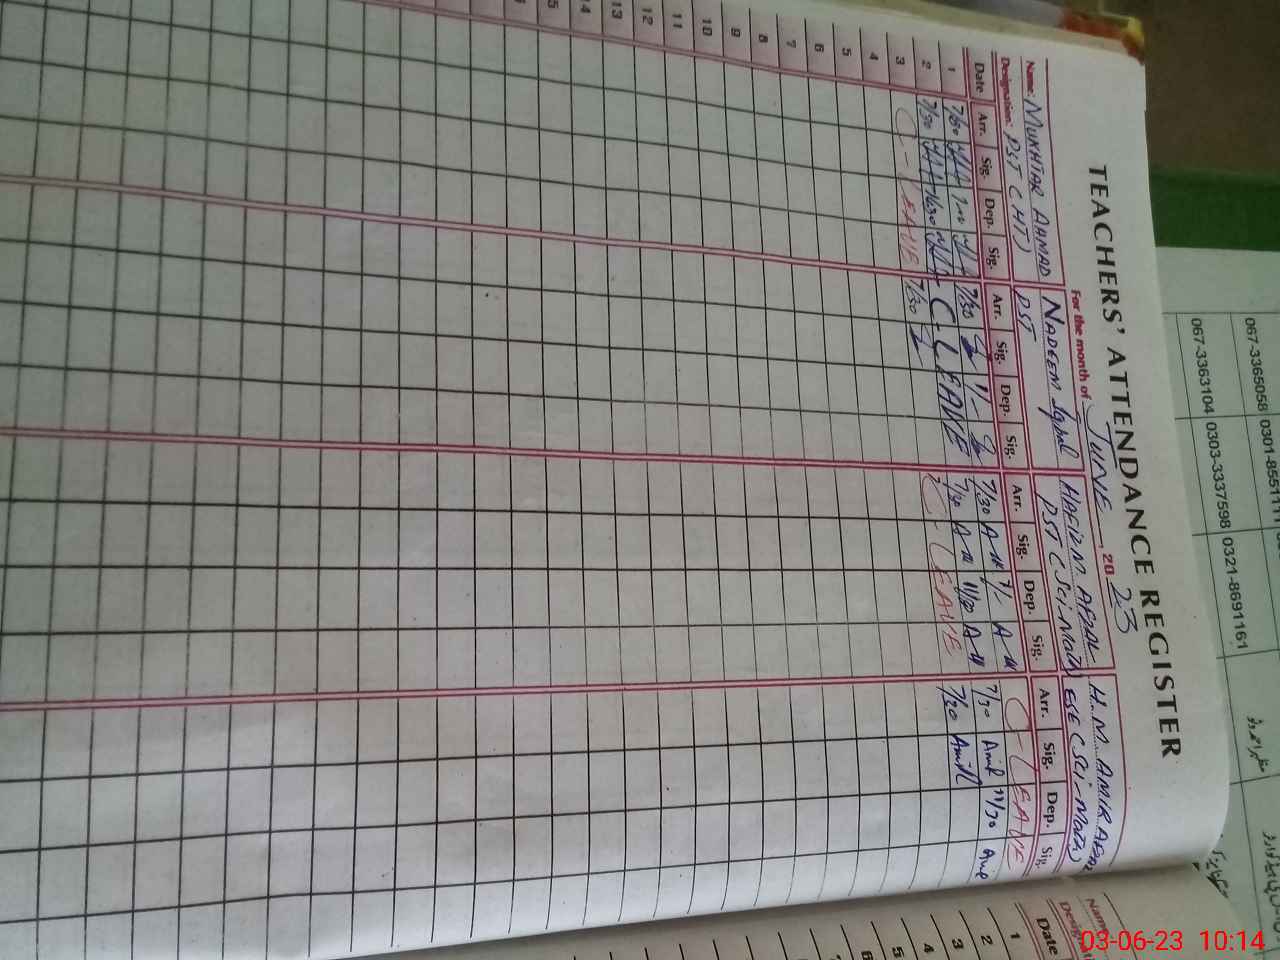 TEACHERS' ATTENDANCE REGISTER
For the month of JUNE, 2023
Name: MUKHTAR AHMAD NADEEM Iqbal HAFIZ M. AFZAL H. M. AMIR
Designation: PST (HT) PST PST (Sci-Math) ESE (Sci-Math)
Date Arr. Sig. Dep. Sig. Arr. Sig. Dep. Sig. Arr. Sig. Dep. Sig. Arr. Sig. Dep. Sig.
1 7/30 7/30 1/- 7/30 A-M 1/- A-M C-LEAVE
2 7/30 11/30 C-LEAVE 7/30 A-M 11/30 A-M 7/30 Amir 11/30 Amir
3 C-LEAVE 7/30 C-LEAVE 7/30 Amir
4
5
6
7
8
9
10
11
12
13
14
15
Date
1
2
3
4
5
6
067-3365058 0301-855111
067-3363104 0303-3337598 0321-8691161
03-06-23 10:14